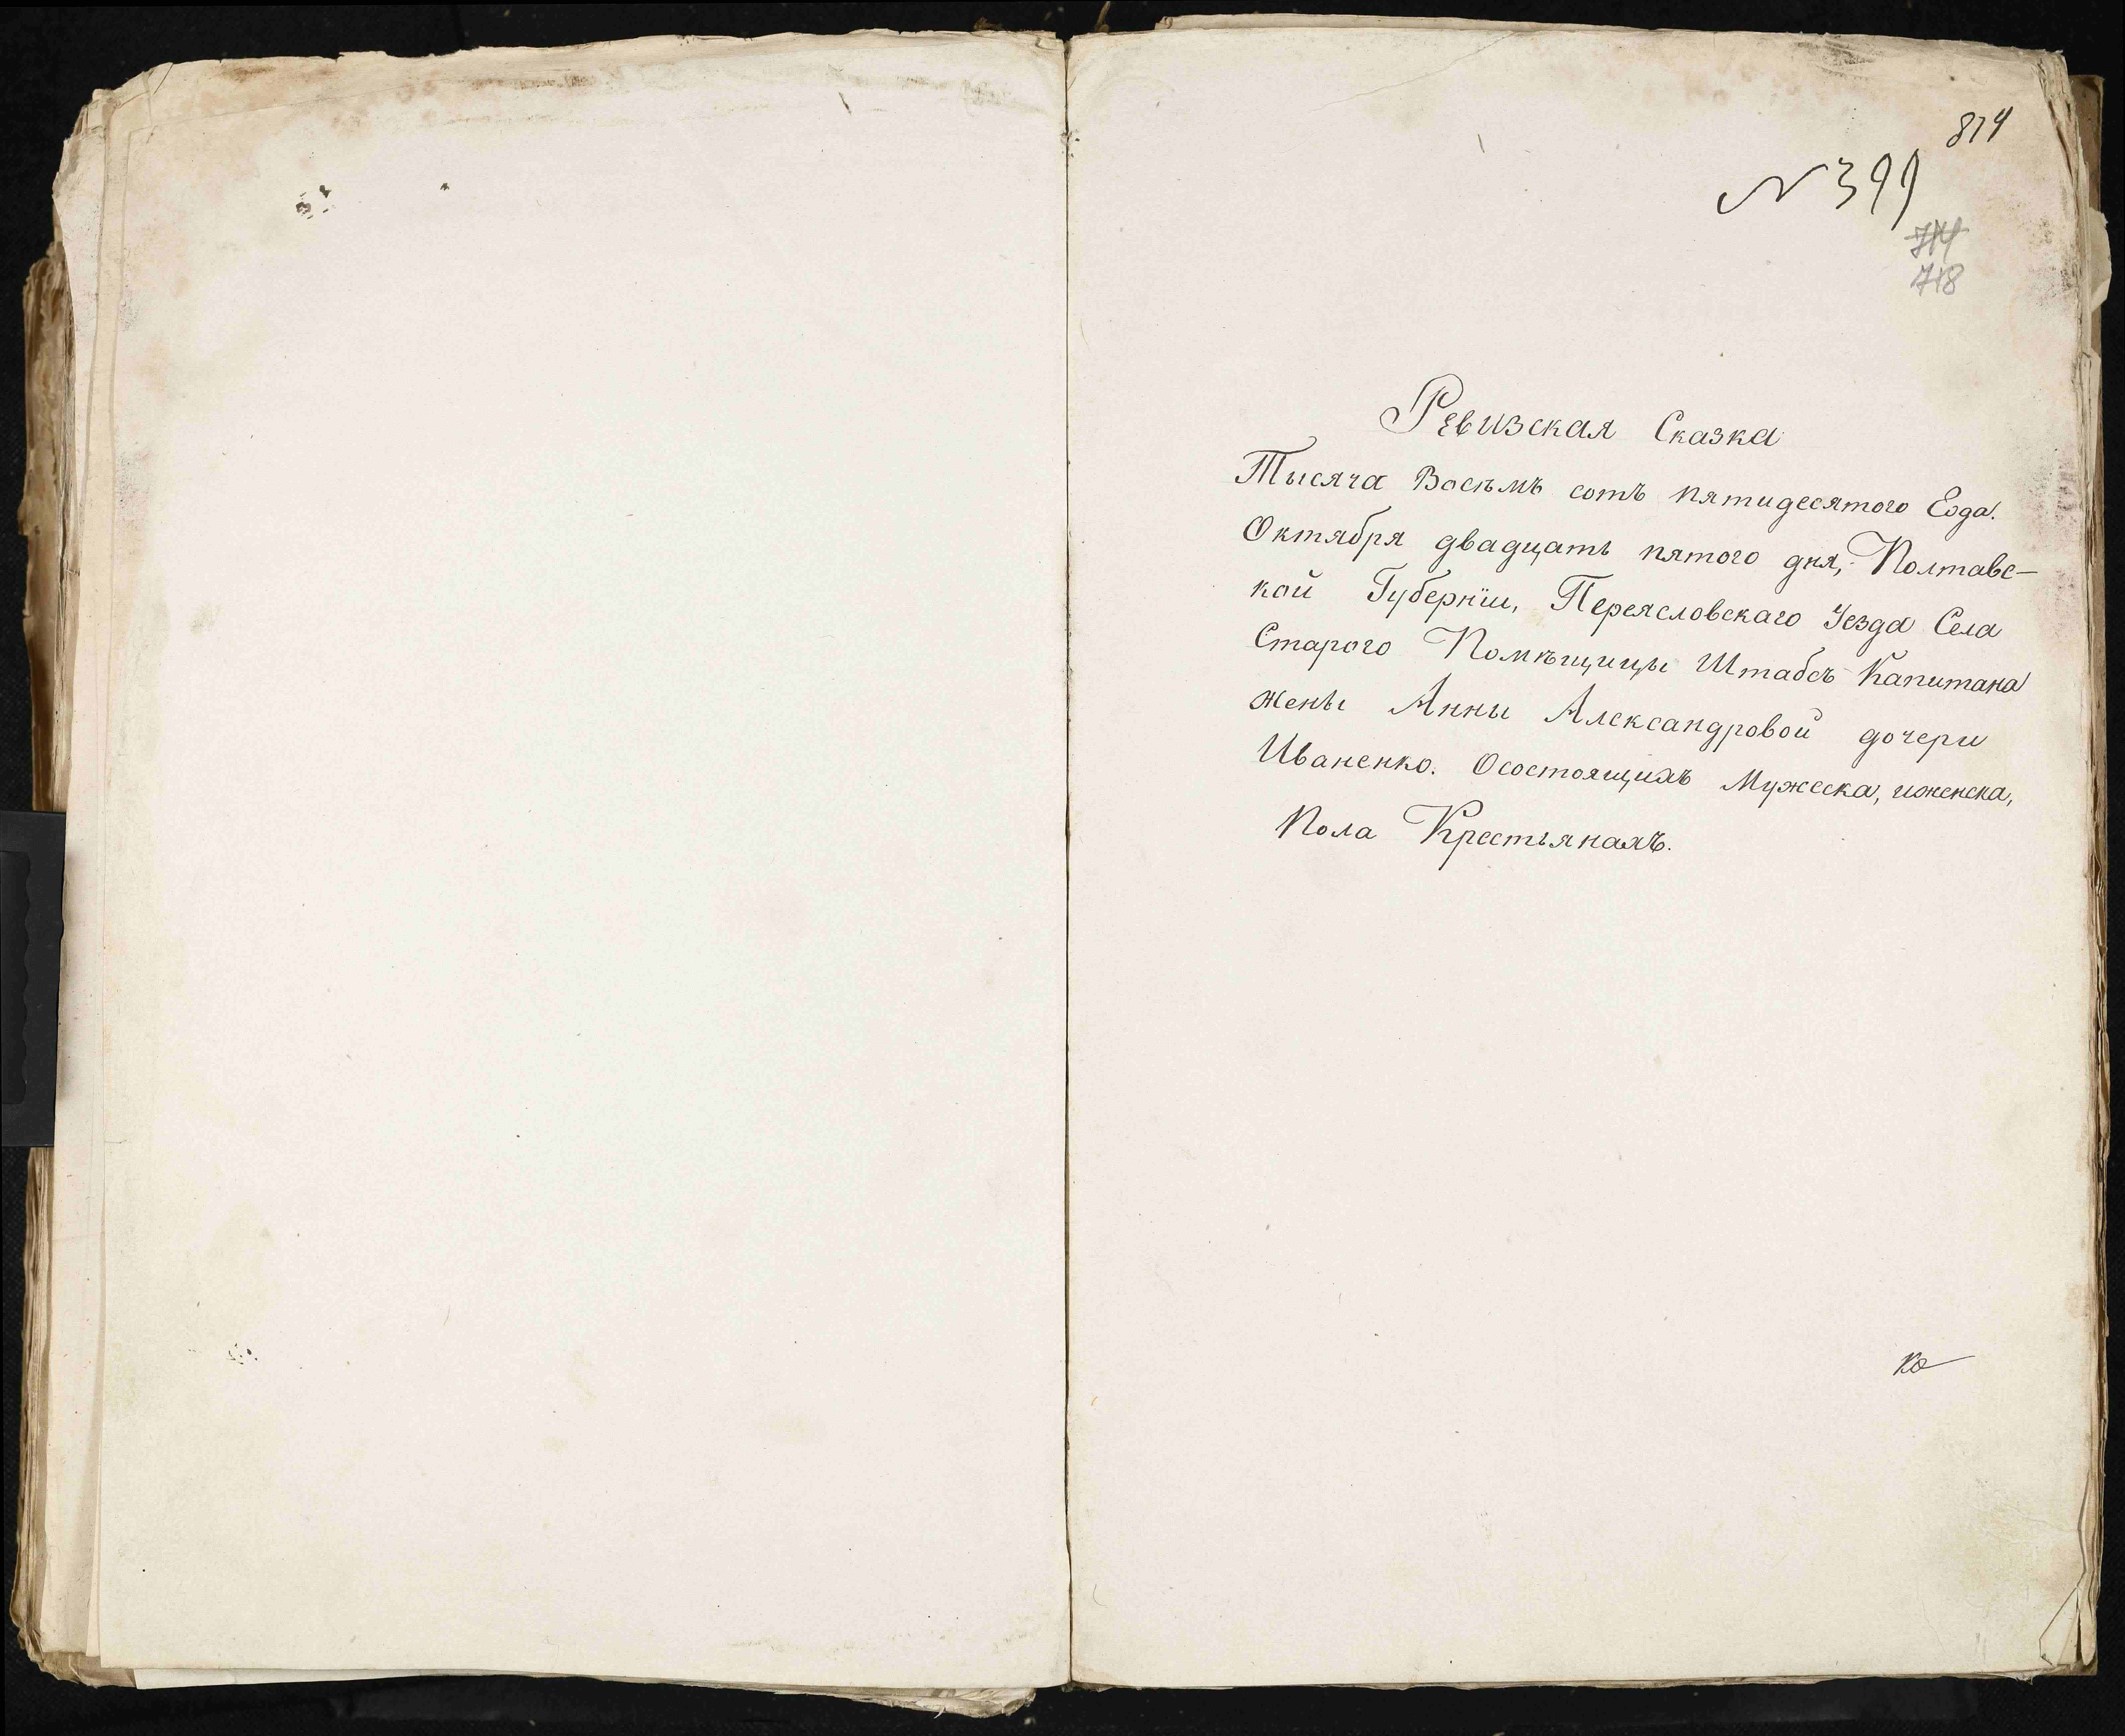 814
N 399
714
718
Ревизская Сказка
Тысяча Восемъ сотъ пятидесятого Года.
Октября двадцать пятого дня, Полтавс-
кой Губерніи, Переясловскаго Уезда Села
Старого Помѣщицы Штабсъ Капитана
жены Анны Александровой дочери
Иваненко. Осостоящихъ Мужеска, иженска,
Пола Крестьянахъ.